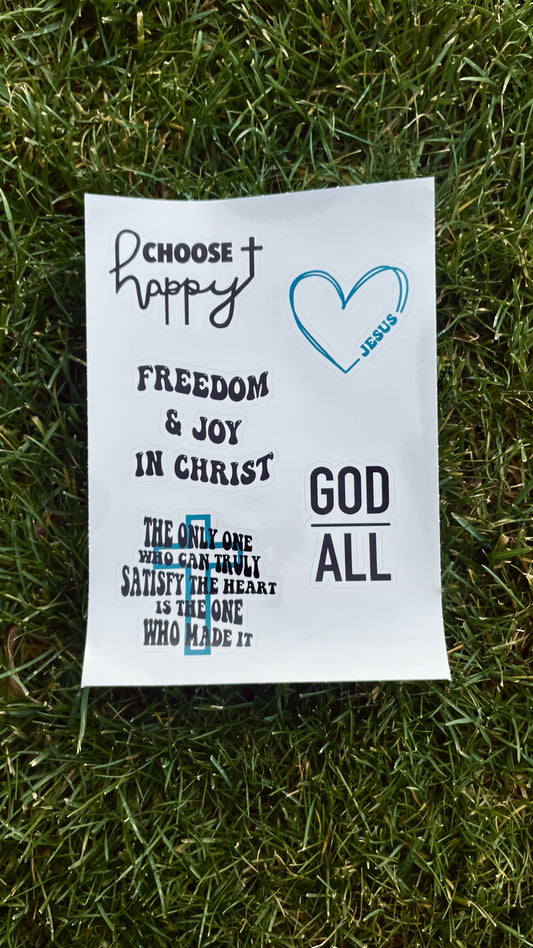 CHOOSE
happy
JESUS
FREEDOM
& JOY
IN CHRIST
GOD
ALL
THE ONLY ONE
WHO CAN TRULY
SATISFY THE HEART
IS THE ONE
WHO MADE IT